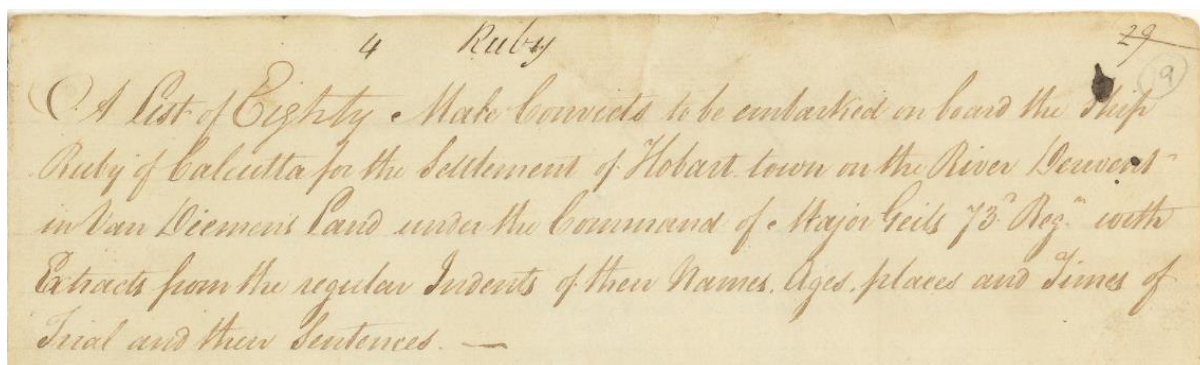 4 Ruby 29
9
A List of Eighty Male Convicts to be embarked on board the Ship
Ruby of Calcutta for the Settlement of Hobart town on the River Derwent
in Van Diemen's Land under the Command of Major Geils 73d Regt with
Extracts from the regular Indents of their Names, Ages, places and Times of
Trial and their Sentences. —